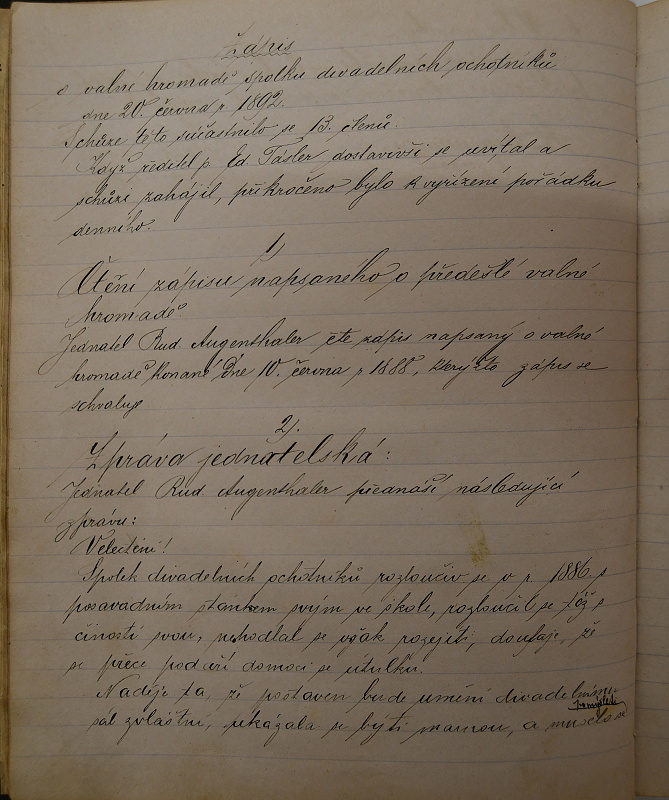 Zápis
o valné hromadě spolku divadelních ochotníků
dne 20. června r. 1892.
Schůze této súčastnilo se 13. členů.
Když ředitel p. Ed. Tásler dostavivší se uvítal a
schůzi zahájil, přikročeno bylo k vyřízení pořádku
denního.
1)
Čtění zápisu napsaného o předešlé valné
hromadě
Jednatel Rud. Augenthaler čte zápis napsaný o valné
hromadě konané dne 10. června r 1888, kterýžto zápis se
schvaluje
2).
Zpráva jednatelská:
Jednatel Rud. Augenthaler přednáší následující
zprávu:
Velectění!
Spolek divadelních ochotníků rozloučiv se v r. 1886. s
posavadním stánkem svým ve škole, rozloučil se též s
činností svou, nehodlal se však rozejíti, doufaje, že
se přece podaří domoci se útulku.
Naděje ta, že postaven bude umění divadelnímu
sál zvláštní, ukázala se býti marnou, a muselo se